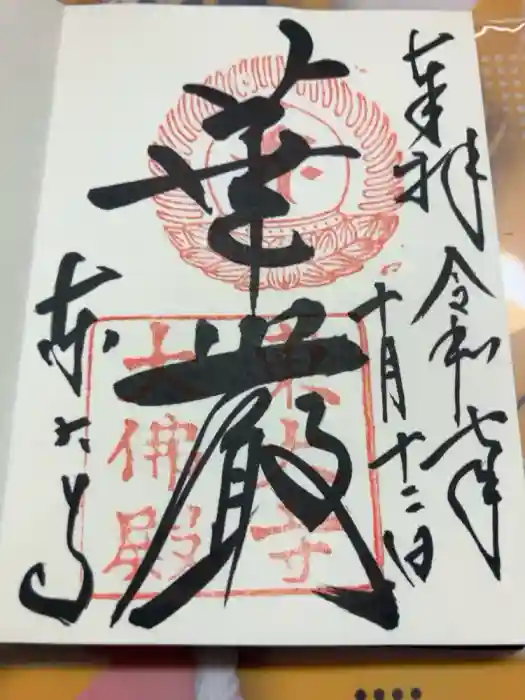 奉拝
令和六年
十月十二日
華厳
東大寺
東大寺
大佛殿